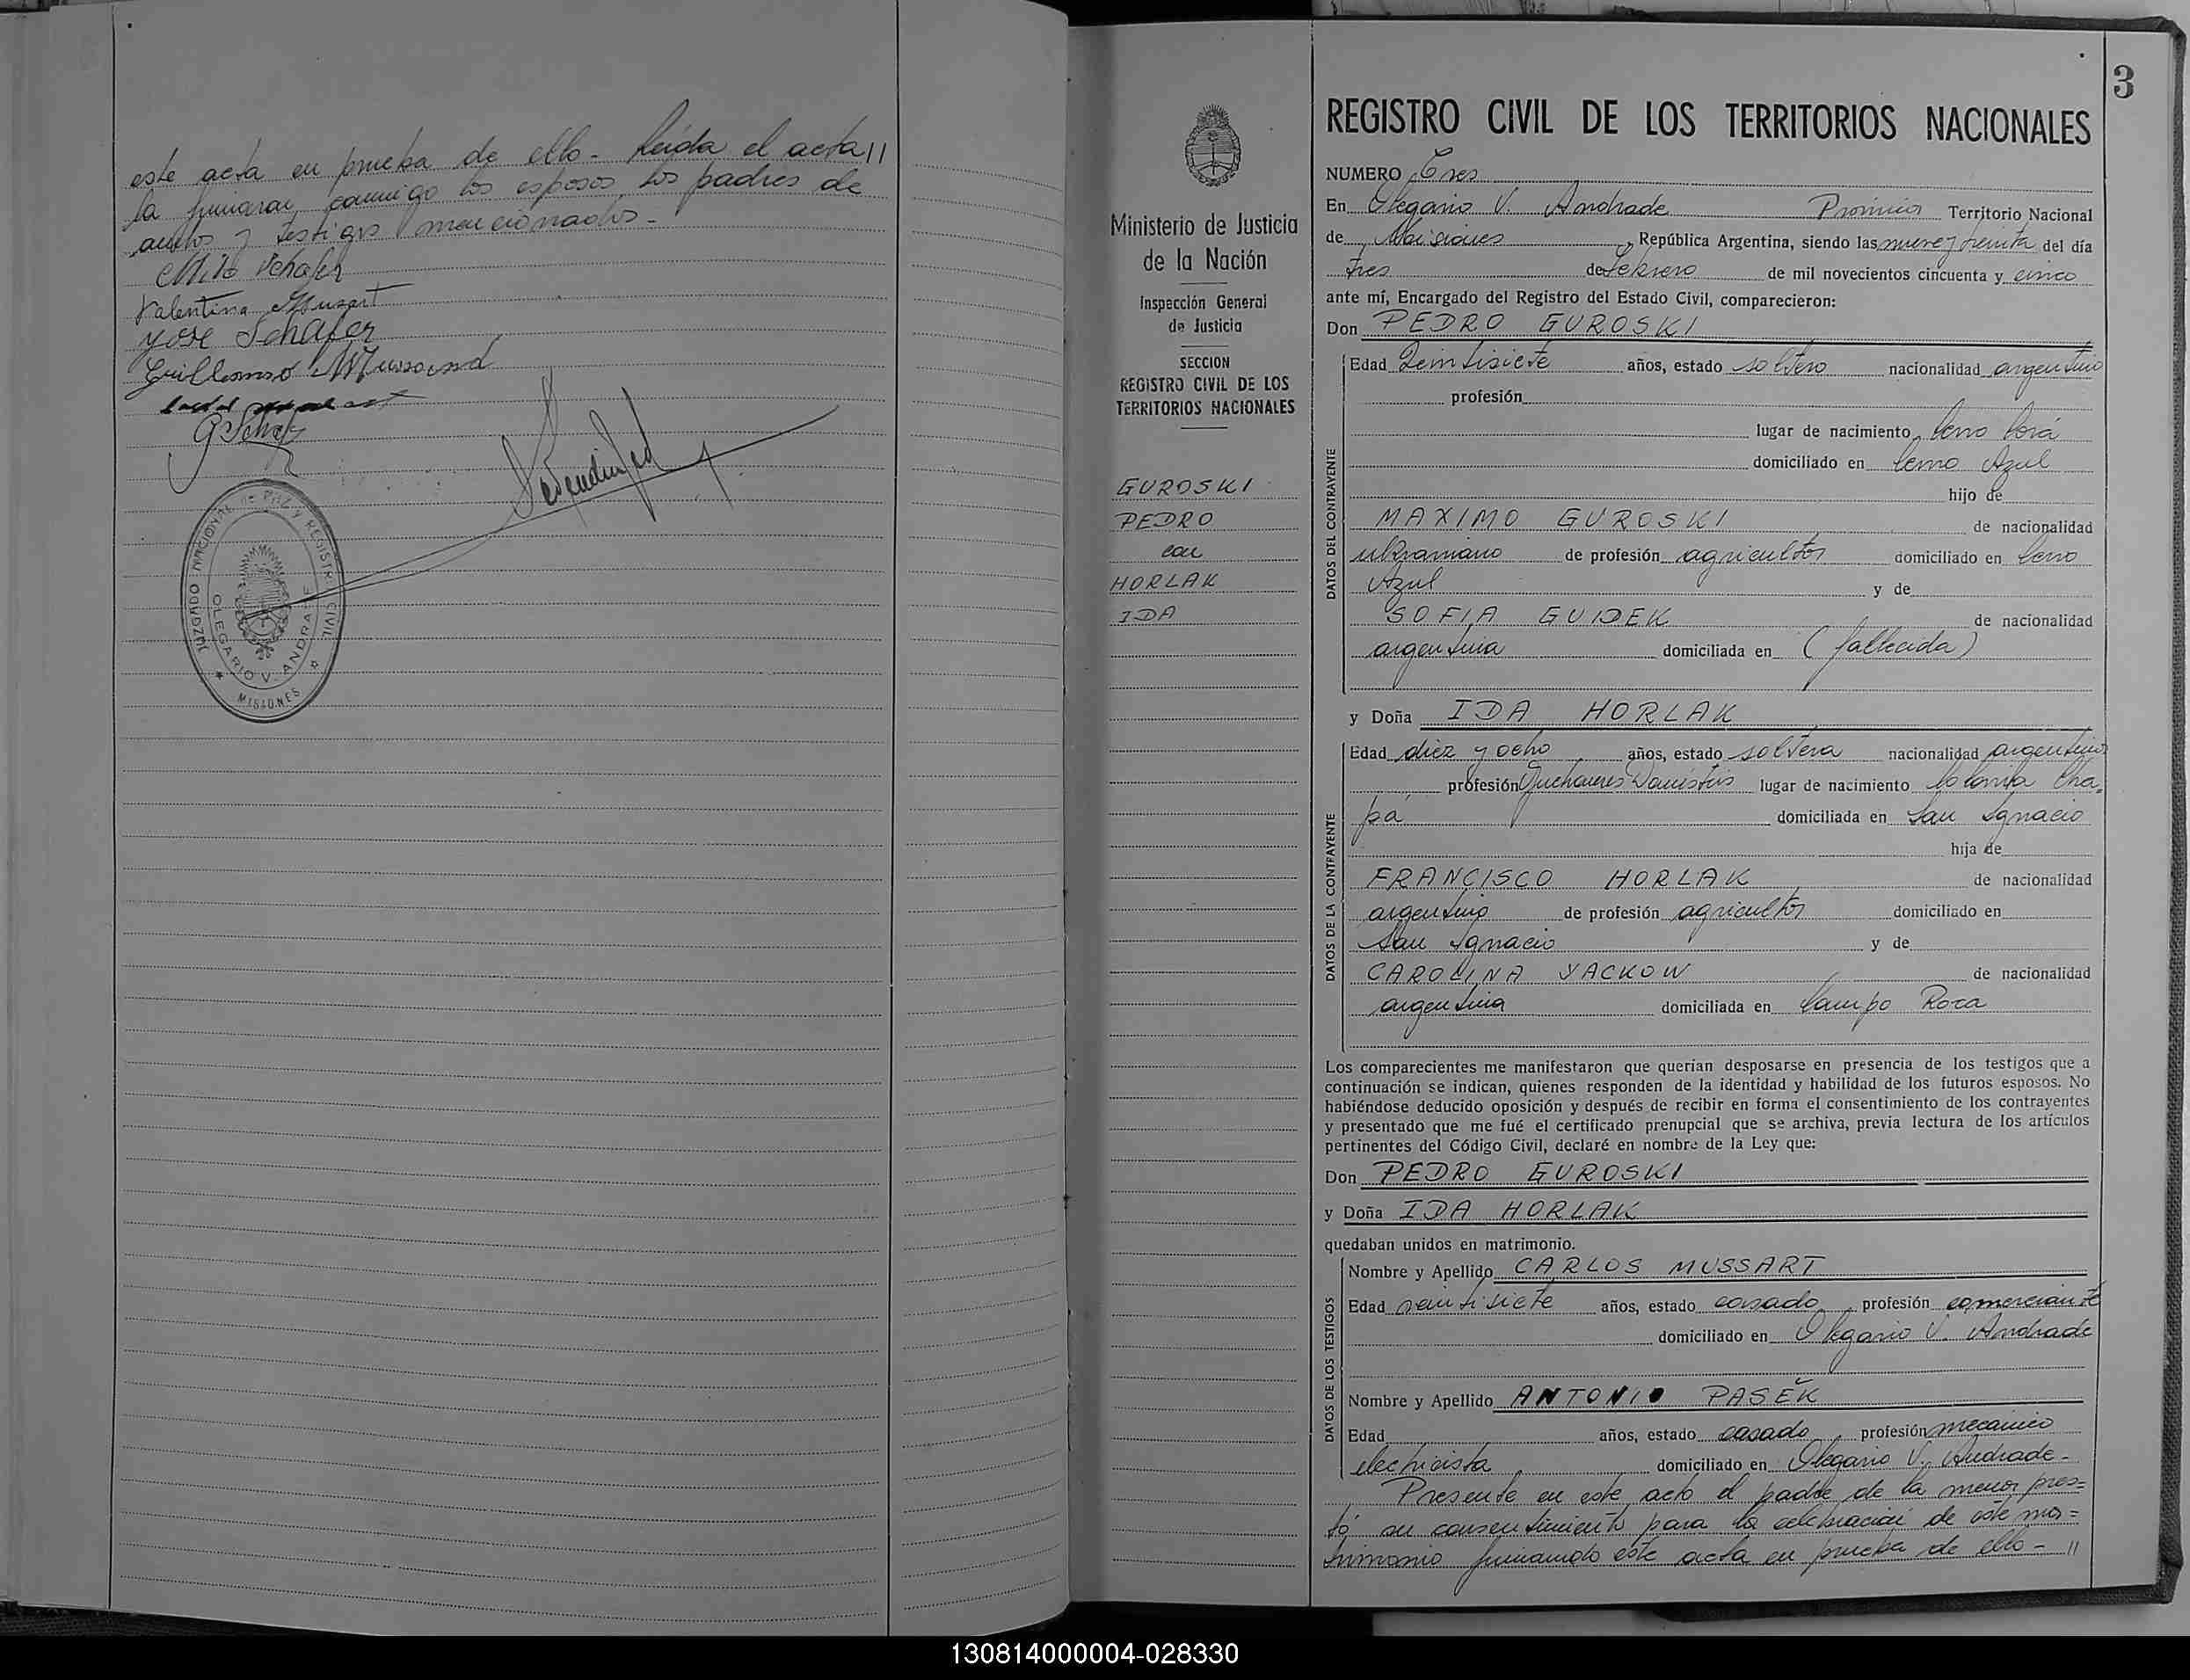 este acta en prueba de ello - Leída el acta //
la firmaron conmigo los esposos los padres de
ambos y testigos mencionados -
Schafer
Valentina Mussart
José Schafer
Guillermo
G Schaf
JUZGADO NACIONAL DE PAZ Y REGISTRO CIVIL
OLEGARIO V. ANDRADE
MISIONES
3
Ministerio de Justicia
de la Nación
Inspección General
de Justicia
SECCION
REGISTRO CIVIL DE LOS
TERRITORIOS NACIONALES
GUROSKI
PEDRO
con
HORLAK
IDA
REGISTRO CIVIL DE LOS TERRITORIOS NACIONALES
NUMERO Tres
En Olegario V. Andrade Provincia Territorio Nacional
de Misiones, República Argentina, siendo las nueve y treinta del día
tres de Febrero de mil novecientos cincuenta y cinco
ante mí, Encargado del Registro del Estado Civil, comparecieron:
Don PEDRO GUROSKI
DATOS DEL CONTRAYENTE
Edad Veintisiete años, estado soltero nacionalidad argentino
profesión
lugar de nacimiento Cerro Corá
domiciliado en Cerro Azul
hijo de
MAXIMO GUROSKI de nacionalidad
ukraniano de profesión agricultor domiciliado en Cerro
Azul y de
SOFIA GUIDEK de nacionalidad
argentina domiciliada en (fallecida)
y Doña IDA HORLAK
DATOS DE LA CONTRAYENTE
Edad diez y ocho años, estado soltera nacionalidad argentina
profesión Quehaceres Domésticos lugar de nacimiento Colonia Cha=
pá domiciliada en San Ignacio
hija de
FRANCISCO HORLAK de nacionalidad
argentino de profesión agricultor domiciliado en
San Ignacio y de
CAROLINA YACKOW de nacionalidad
argentina domiciliada en Campo Roca
Los comparecientes me manifestaron que querían desposarse en presencia de los testigos que a
continuación se indican, quienes responden de la identidad y habilidad de los futuros esposos. No
habiéndose deducido oposición y después de recibir en forma el consentimiento de los contrayentes
y presentado que me fué el certificado prenupcial que se archiva, previa lectura de los artículos
pertinentes del Código Civil, declaré en nombre de la Ley que:
Don PEDRO GUROSKI
y Doña IDA HORLAK
quedaban unidos en matrimonio.
DATOS DE LOS TESTIGOS
Nombre y Apellido CARLOS MUSSART
Edad veintisiete años, estado casado profesión comerciante
domiciliado en Olegario V. Andrade
Nombre y Apellido ANTONIO PASEK
Edad años, estado casado profesión mecanico
electricista domiciliado en Olegario V. Andrade -
Presente en este acto el padre de la menor pres=
tó su consentimiento para la celebración de este ma=
trimonio firmando este acta en prueba de ello - //
130814000004-028330